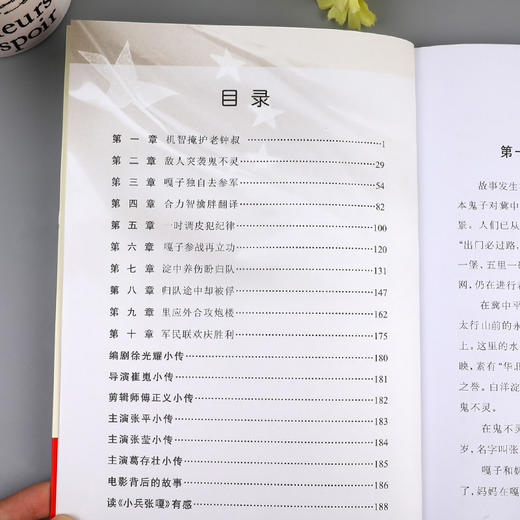 eurs
espoir
目录
第一章 机智掩护老钟叔 1
第二章 敌人突袭鬼不灵 29
第三章 嘎子独自去参军 54
第四章 合力智擒胖翻译 82
第五章 一时调皮犯纪律 100
第六章 嘎子参战再立功 120
第七章 淀中养伤盼归队 131
第八章 归队途中却被俘 147
第九章 里应外合攻炮楼 162
第十章 军民联欢庆胜利 175
编剧徐光耀小传 180
导演崔嵬小传 181
剪辑师傅正义小传 182
主演张平小传 183
主演张莹小传 184
主演葛存壮小传 185
电影背后的故事 186
读《小兵张嘎》有感 188
第一
故事发生
本鬼子对冀中
景。人们已从
“出门必过路，
一堡，五里一
网，仍在进行
在冀中平
太行山前的
上。这里的水
映，素有“华北
之誉。白洋淀
鬼不灵。
在鬼不灵
岁，名字叫张
嘎子和奶
了，妈妈在嘎